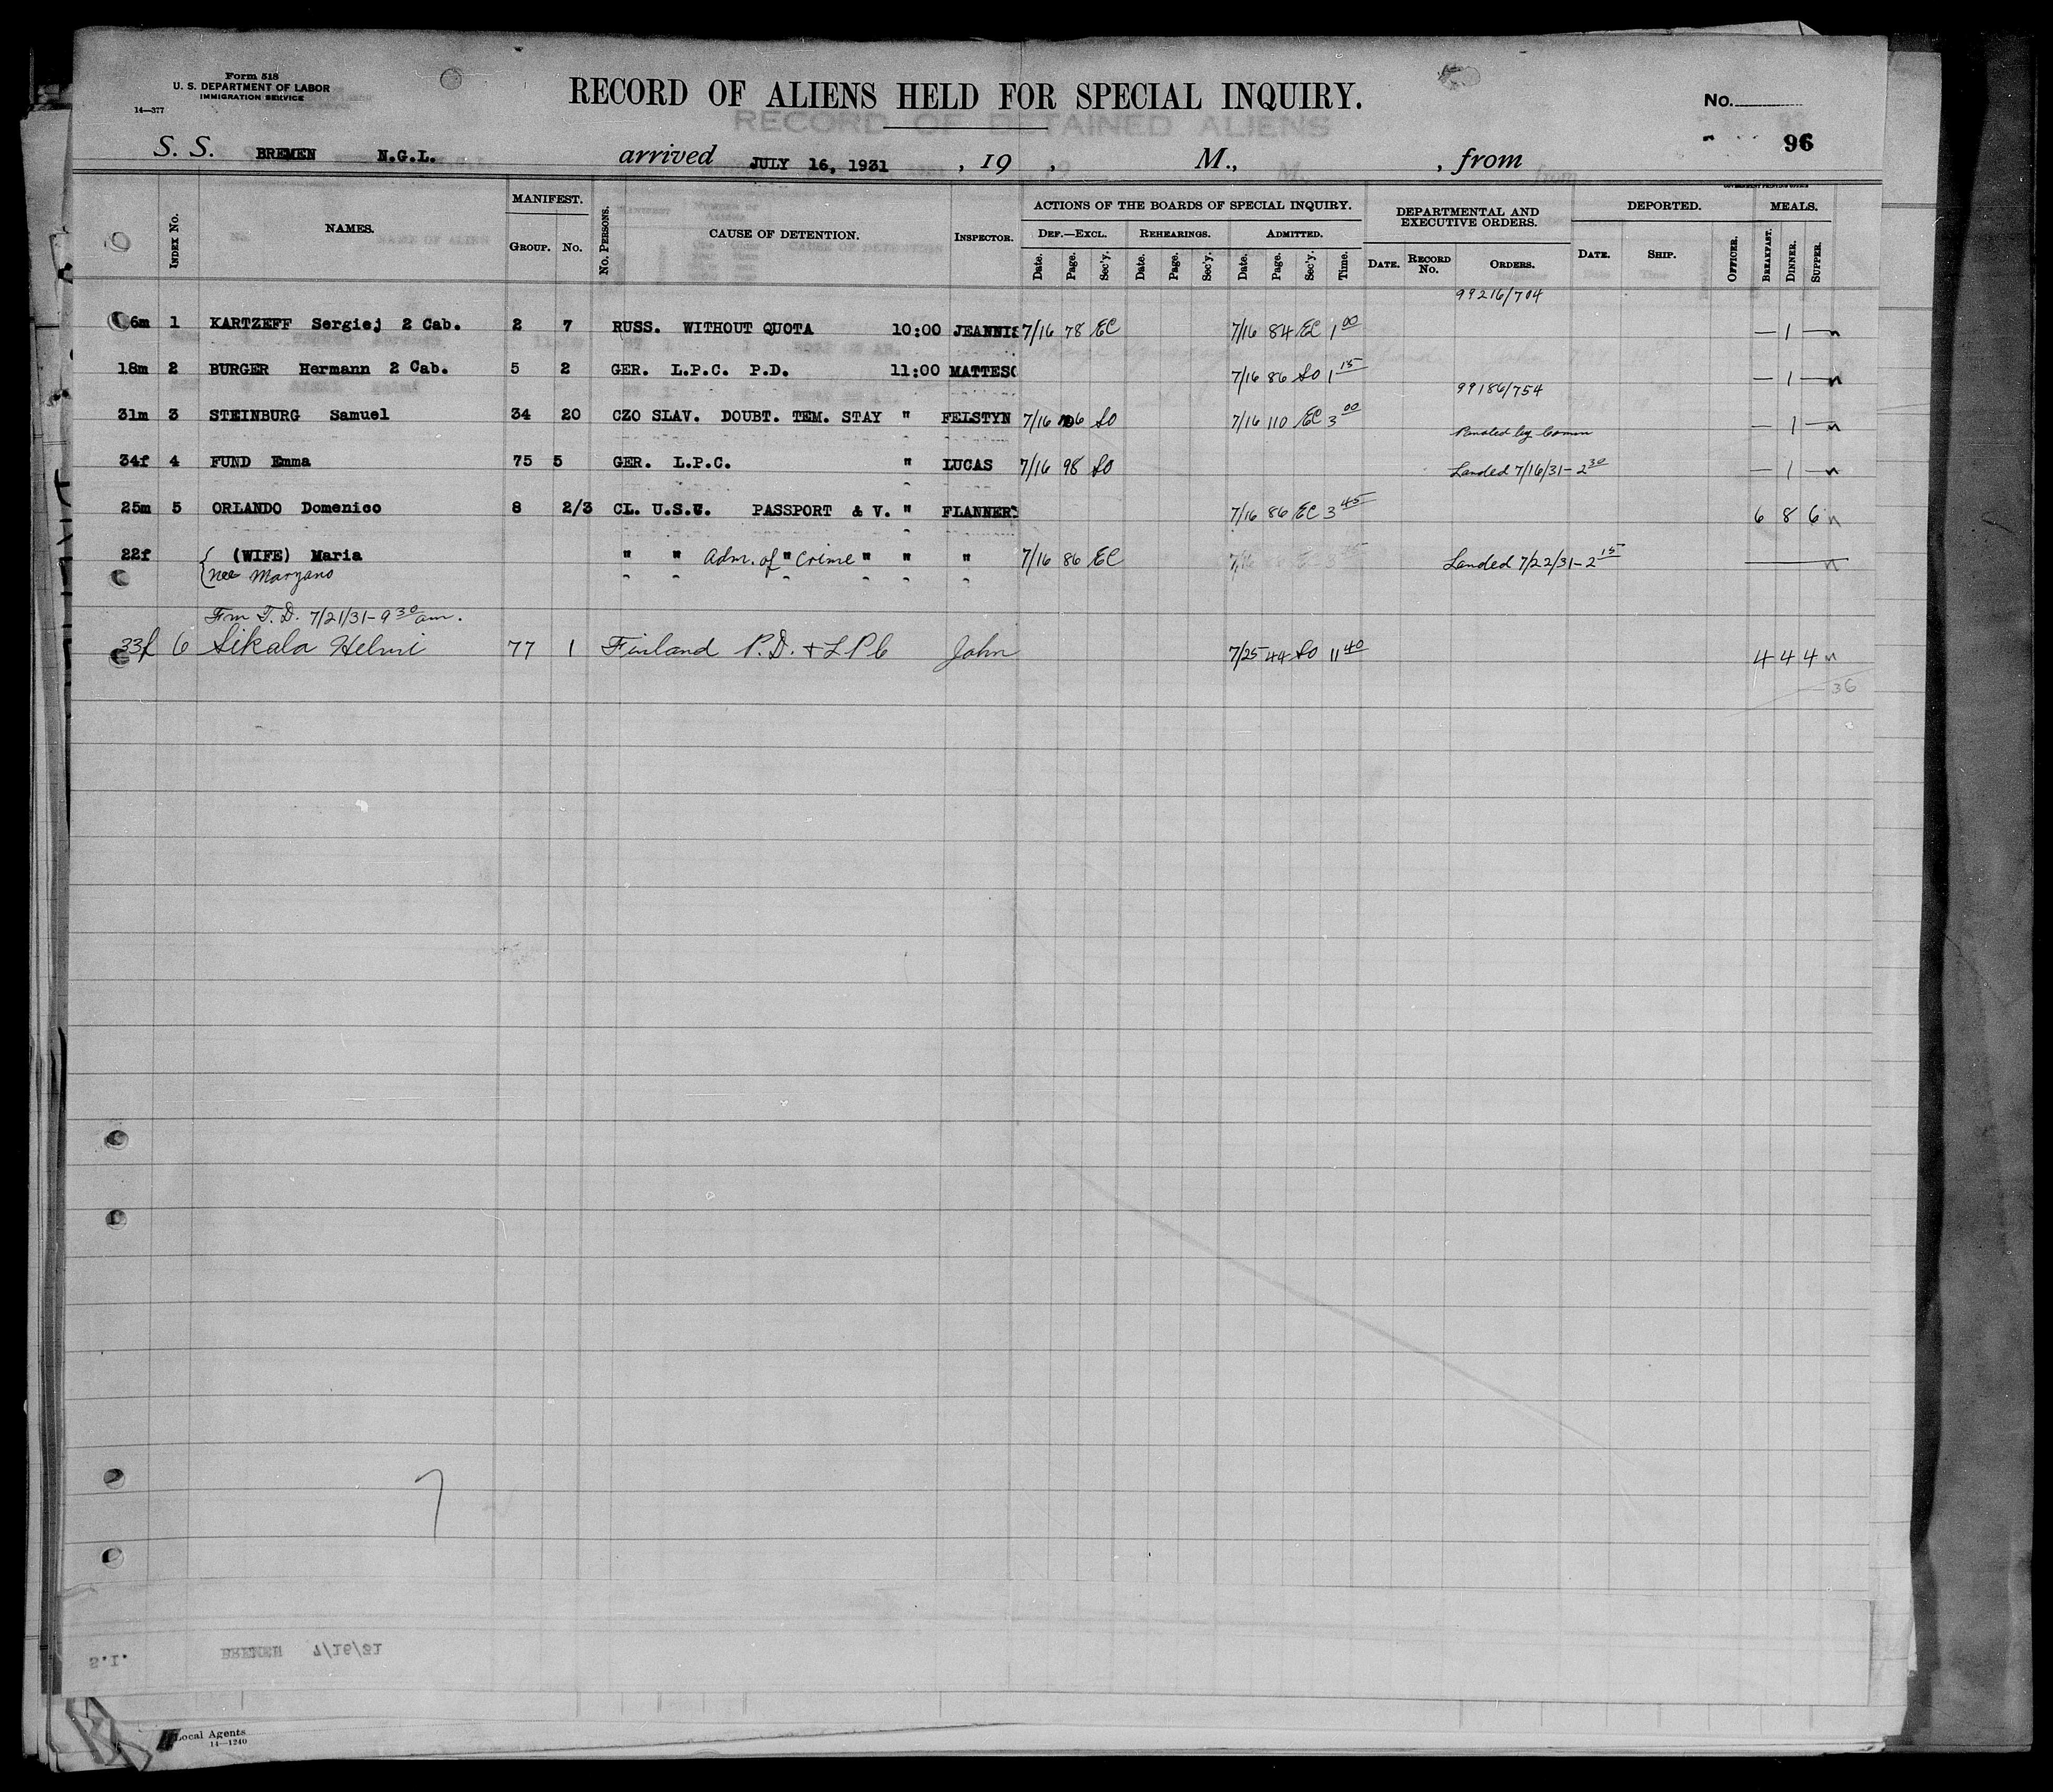 Form 518
U. S. DEPARTMENT OF LABOR
IMMIGRATION SERVICE
14—377
RECORD OF ALIENS HELD FOR SPECIAL INQUIRY.
RECORD OF DETAINED ALIENS
No.
96
S. S. BREMEN N.G.L. arrived JULY 16, 1931 , 19 , M., , from
GOVERNMENT PRINTING OFFICE
INDEX NO. NAMES. MANIFEST. GROUP. NO. NO. PERSONS. CAUSE OF DETENTION. INSPECTOR. ACTIONS OF THE BOARDS OF SPECIAL INQUIRY. DEPARTMENTAL AND EXECUTIVE ORDERS. DEPORTED. MEALS.
DEF.—EXCL. REHEARINGS. ADMITTED.
Date. Page. Sec'y. Date. Page. Sec'y. Date. Page. Sec'y. Time. DATE. RECORD NO. ORDERS. DATE. SHIP. OFFICER. BREAKFAST. DINNER. SUPPER.
99216/704
6m 1 KARTZEFF Sergiej 2 Cab. 2 7 RUSS. WITHOUT QUOTA 10:00 JEANNIS 7/16 78 EC 7/16 84 EC 1 00 — 1 —
18m 2 BURGER Hermann 2 Cab. 5 2 GER. L.P.C. P.D. 11:00 MATTESO 7/16 86 SO 1 15 — 1 —
99186/754
31m 3 STEINBURG Samuel 34 20 CZO SLAV. DOUBT. TEM. STAY " FELSTYN 7/16 SO 7/16 110 EC 3 00 — 1 —
34f 4 FUND Emma 75 5 GER. L.P.C. " LUCAS 7/16 98 SO Landed 7/16/31 – 2 30 — 1 —
25m 5 ORLANDO Domenico 8 2/3 CL. U.S.C. PASSPORT & V. " FLANNER 7/16 86 EC 3 45 6 8 6
22f (WIFE) Maria " " Adm. of "Crime" " " 7/16 86 EC Landed 7/22/31 – 2 15
nee Marzano
Frm T.D. 7/21/31 – 9 30 am.
33f 6 Sikala Helmi 77 1 Finland P.D. + LPC John 7/25 44 SO 11 40 4 4 4
36
7
S.I. BREMEN 7/16/31
Local Agents
14—1240